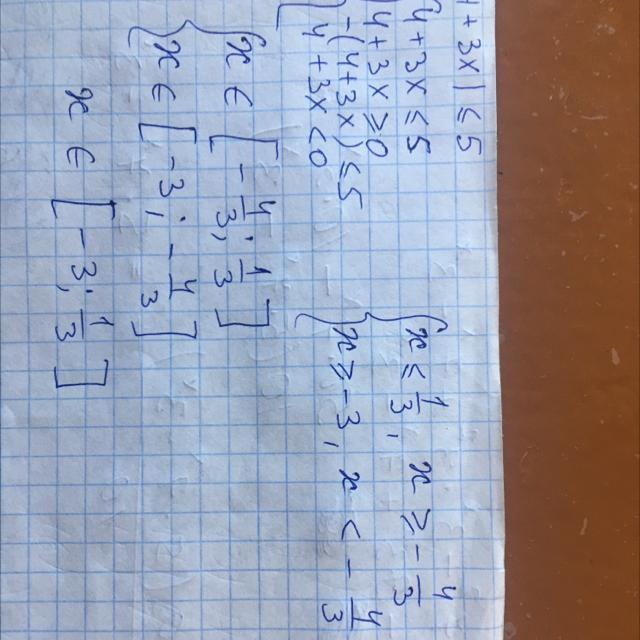 4 + 3x | ≤ 5
{ 4 + 3x ≤ 5
4 + 3x ≥ 0
{ -(4 + 3x) ≤ 5
4 + 3x < 0
{ x ≤ 1/3, x ≥ - 4/3
{ x ≥ -3, x < - 4/3
{ x ∈ [ - 4/3 ; 1/3 ]
{ x ∈ [ -3 ; - 4/3 ]
x ∈ [ -3 ; 1/3 ]